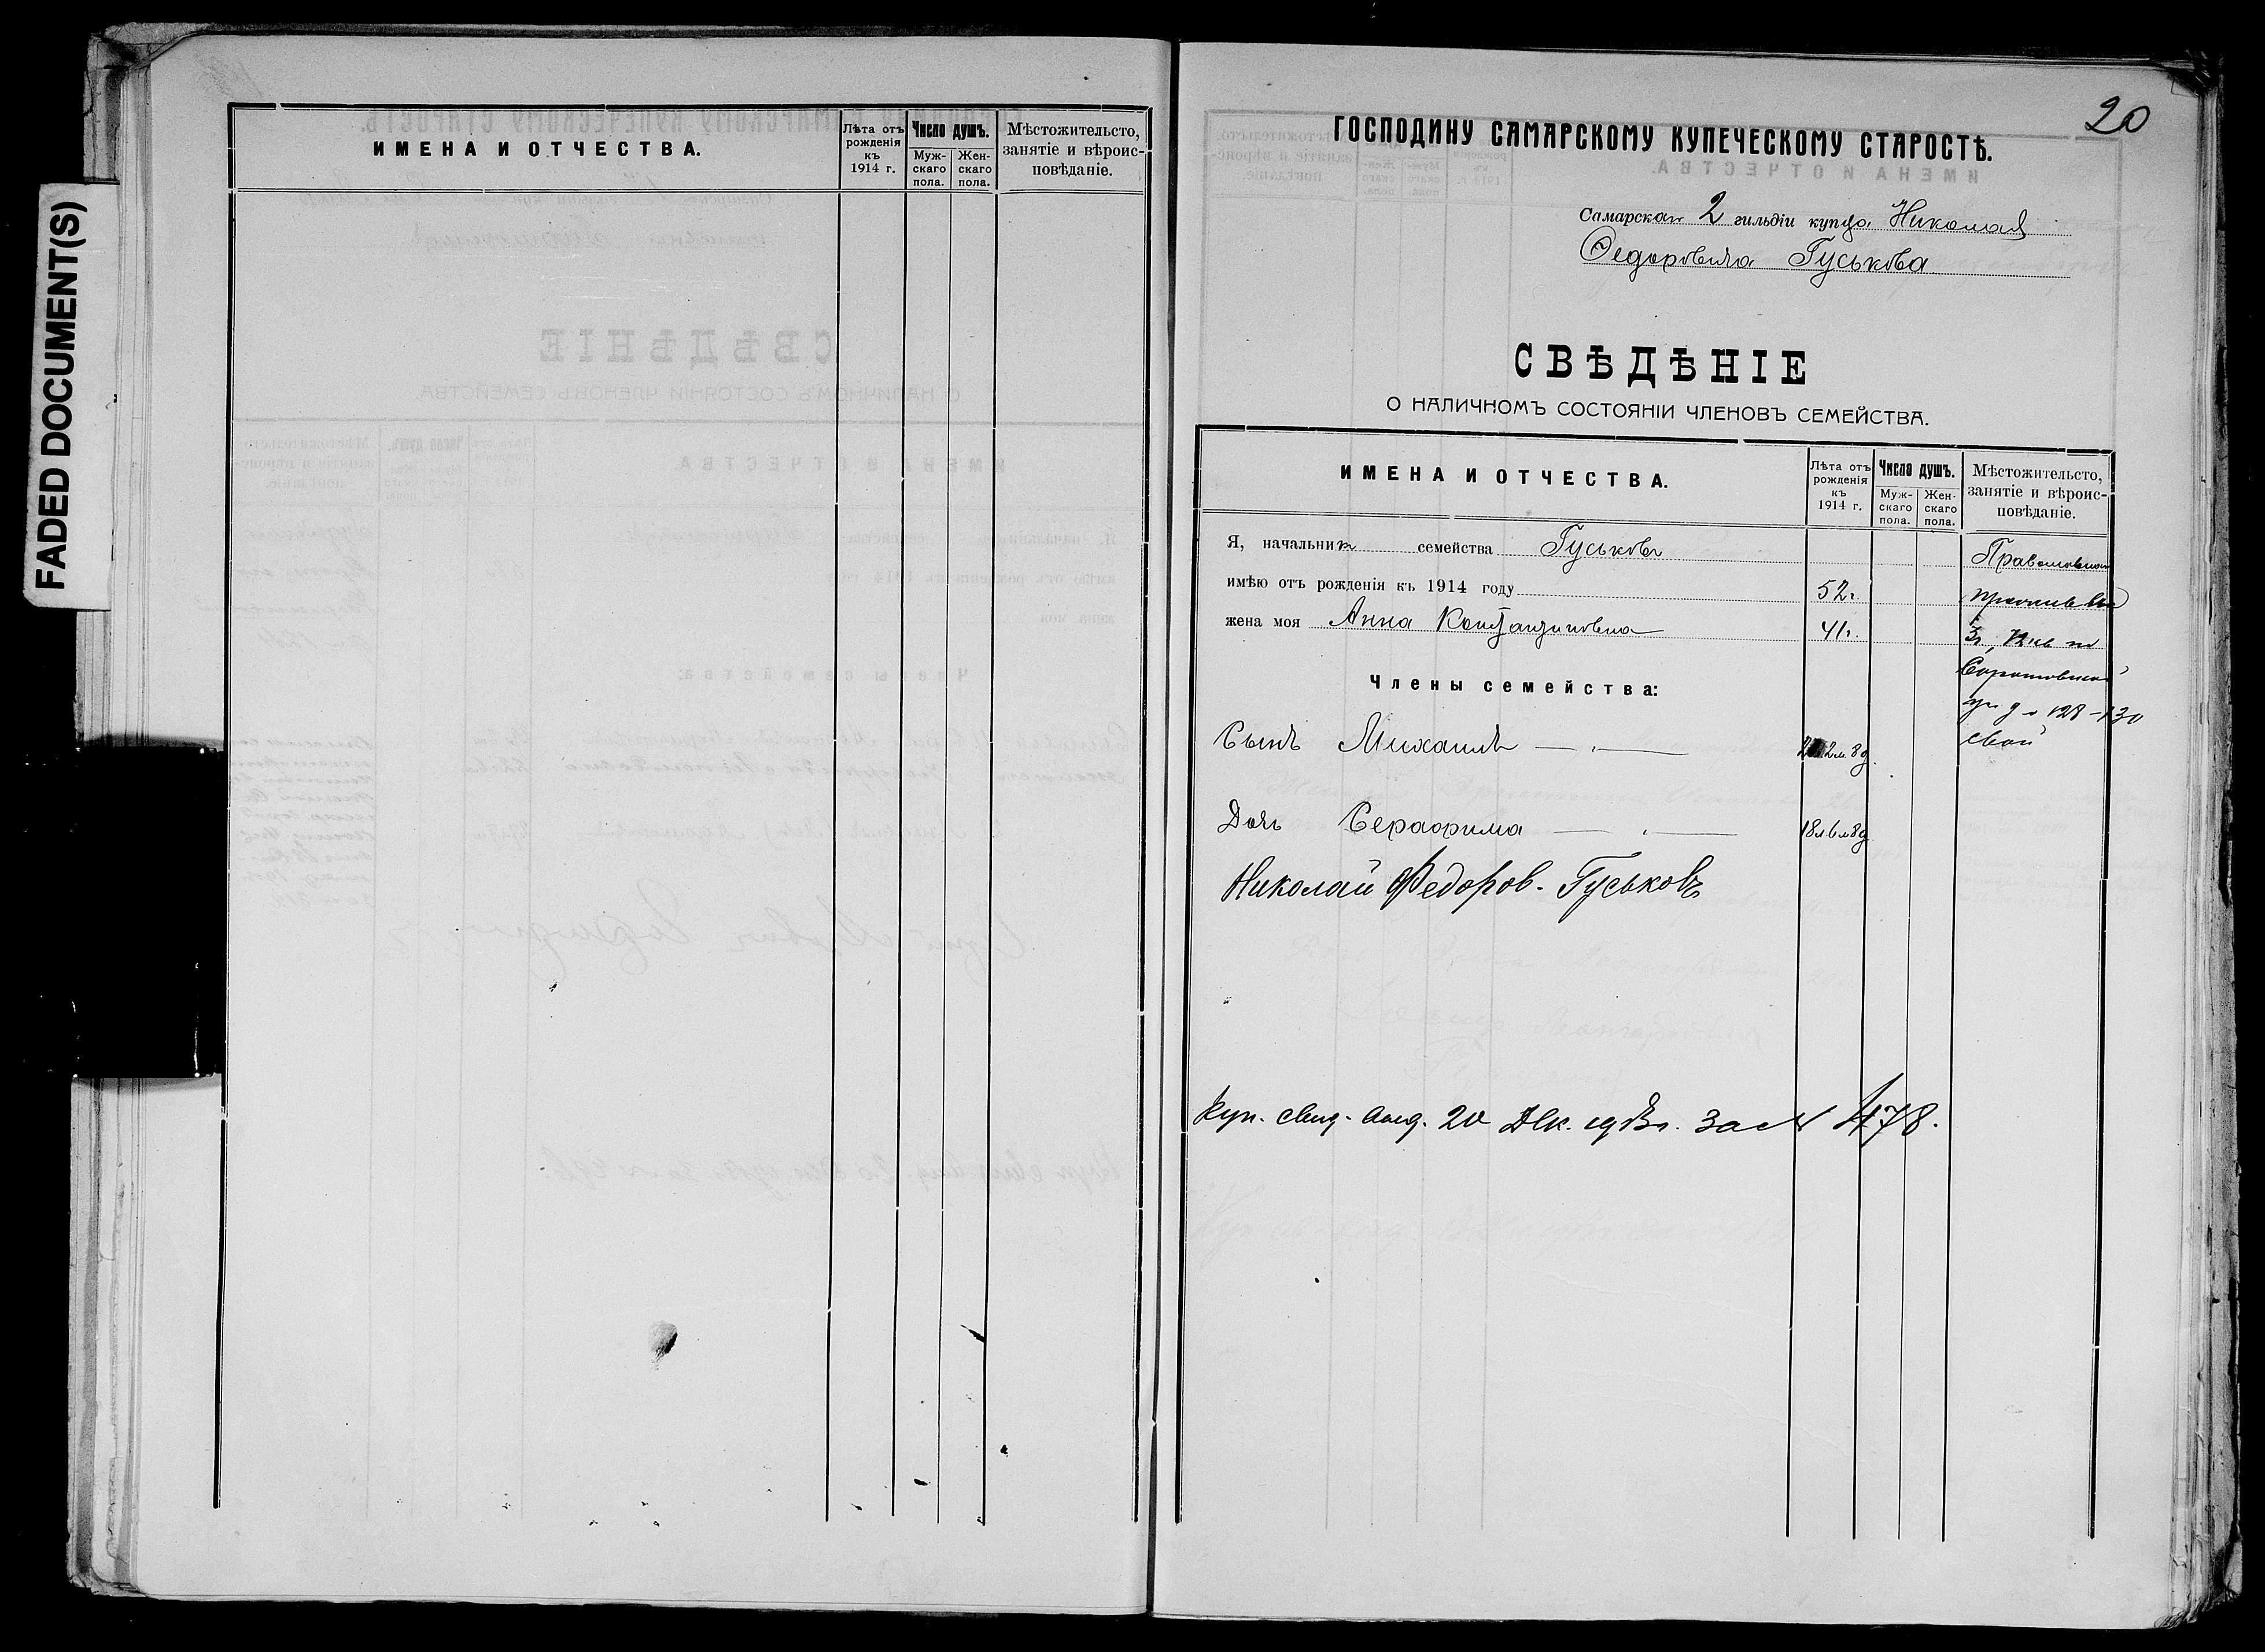 FADED DOCUMENT(S)
ИМЕНА И ОТЧЕСТВА.
Лѣта отъ рожденія къ 1914 г.
Число душъ.
Муж-скаго пола.
Жен-скаго пола.
Мѣстожительсто, занятіе и вѣроис-повѣданіе.
20
ГОСПОДИНУ САМАРСКОМУ КУПЕЧЕСКОМУ СТАРОСТѢ.
Самарскаго 2 гильдіи купца Николая
Федоровича Гуськова
СВѢДѢНІЕ
О НАЛИЧНОМЪ СОСТОЯНІИ ЧЛЕНОВЪ СЕМЕЙСТВА.
ИМЕНА И ОТЧЕСТВА.
Лѣта отъ рожденія къ 1914 г.
Число душъ.
Муж-скаго пола.
Жен-скаго пола.
Мѣстожительсто, занятіе и вѣроис-повѣданіе.
Я, начальникъ семейства Гуськовъ Православная
имѣю отъ рожденія къ 1914 году 52 г.
жена моя Анна Константиновна 41 г.
Саратовской
Члены семейства:
ул д № 128-130
Сынъ Михаилъ — " — 2м. 8д. свой
Дочь Серафима — " — 18л. 6м 8д
Николай Федоров. Гуськовъ
Куп. свид. выд. 20 Дек. 1913 г. за № 478.